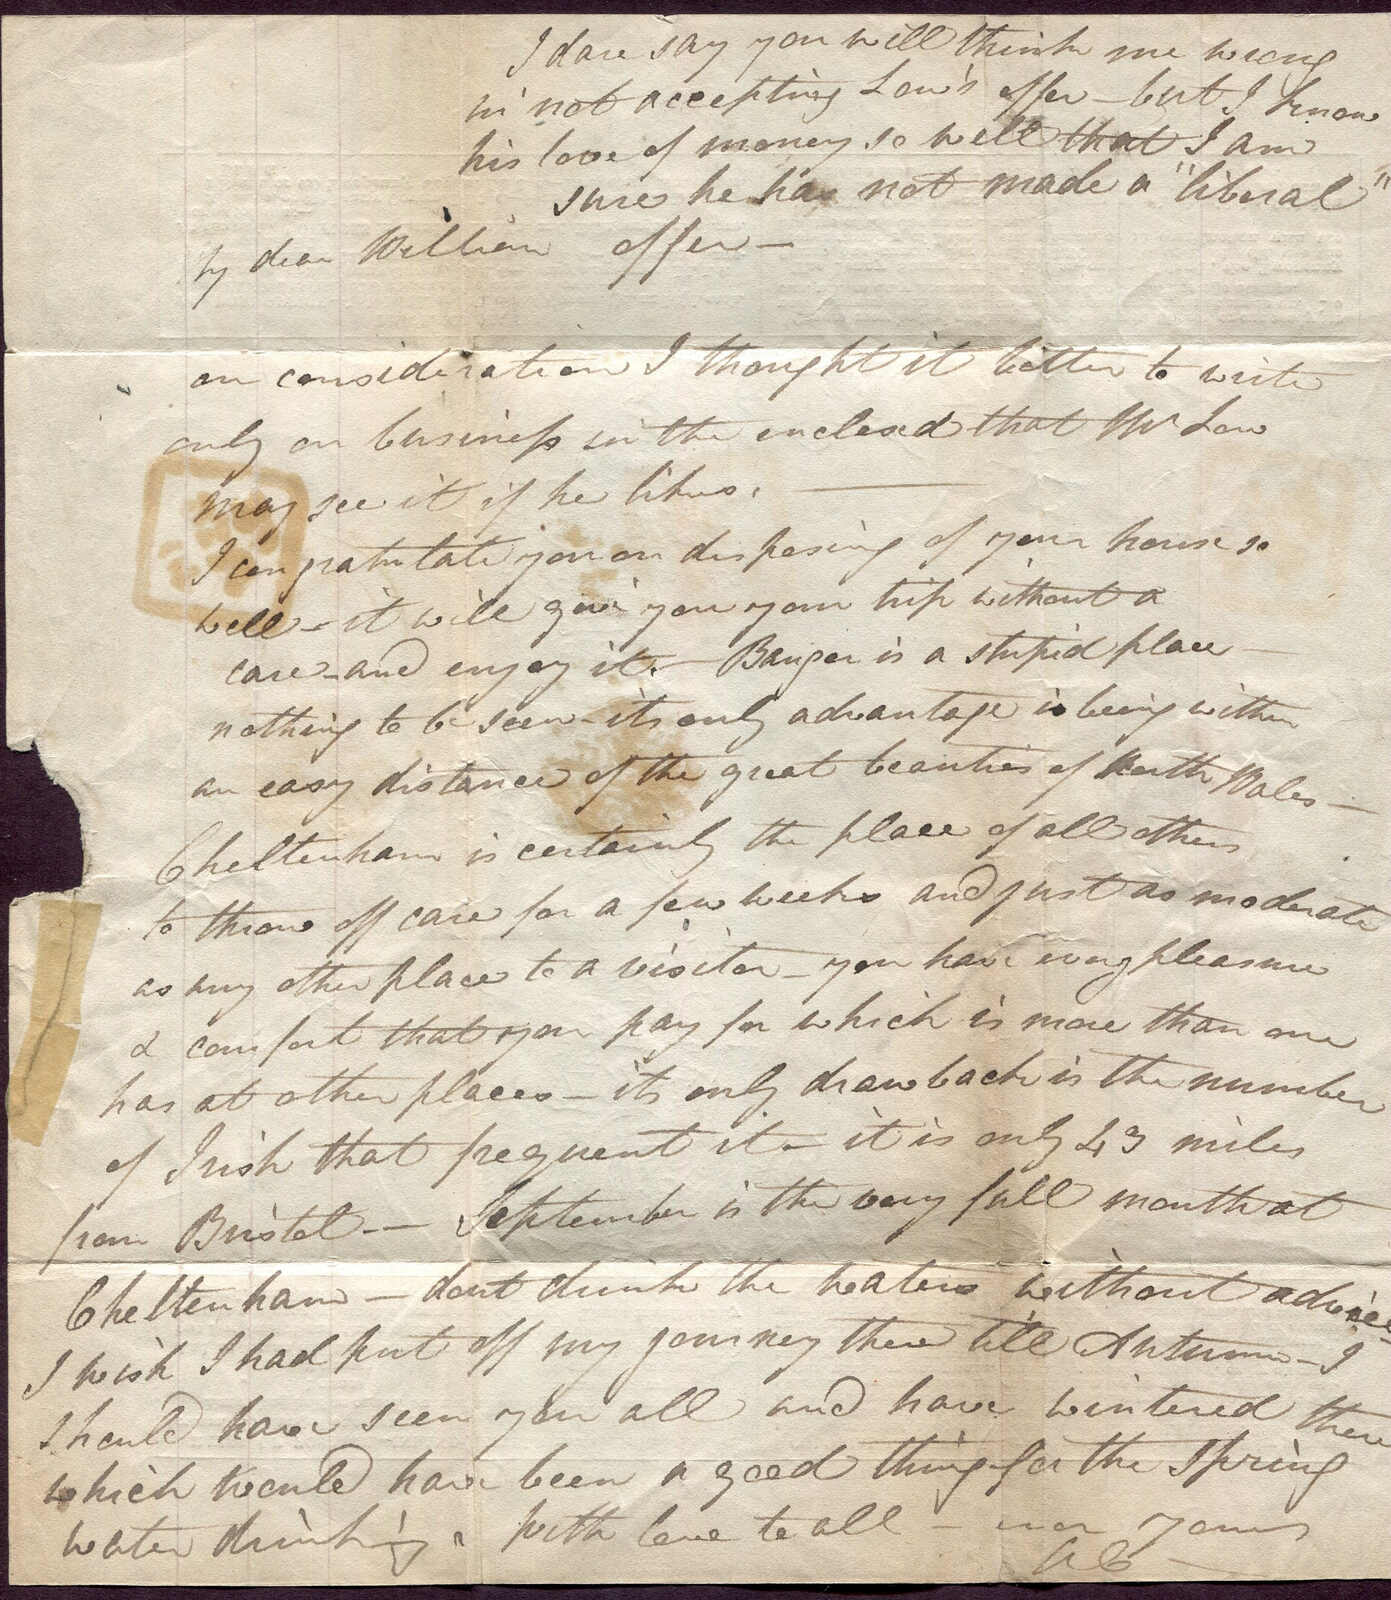 I dare say you will think me wrong
in not accepting Low's offer – but I know
his love of money so well that I am
sure he has not made a "liberal"
offer –
My dear William
on consideration I thought it better to write
only on business in the enclosed that Mr Low
may see it if he likes. —
I congratulate you on disposing of your house so
well – it will give you your trip without a
care – and enjoy it. – Bangor is a stupid place –
nothing to be seen – its only advantage is being within
an easy distance of the great beauties of North Wales –
Cheltenham is certainly the place of all others
to throw off care for a few weeks and just as moderate
as any other place to a visitor – you have every pleasure
& comfort that you pay for which is more than one
has at other places – its only drawback is the number
of Irish that frequent it – it is only 43 miles
from Bristol — September is the very full month at
Cheltenham – dont drink the waters without advice –
I wish I had put off my journey there till Autumn – I
should have seen you all and have wintered there
which would have been a good thing for the spring
water drinking. With love to all – ever yours